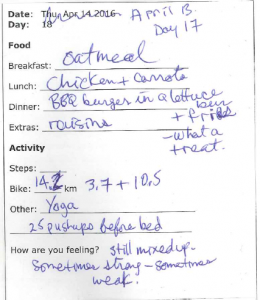 Date: Thu, Apr 14, 2016 April 13
Day: 18 Day 17
Food
Breakfast: Oatmeal
Lunch: Chicken + Carrots
Dinner: BBQ burger in a lettuce
bun
+ fries
Extras: raisins - what a
treat.
Activity
Steps:
Bike: 14.2 km 3.7 + 10.5
Other: Yoga
25 pushups before bed
How are you feeling? Still mixed up-
Sometimes strong - sometimes
weak.